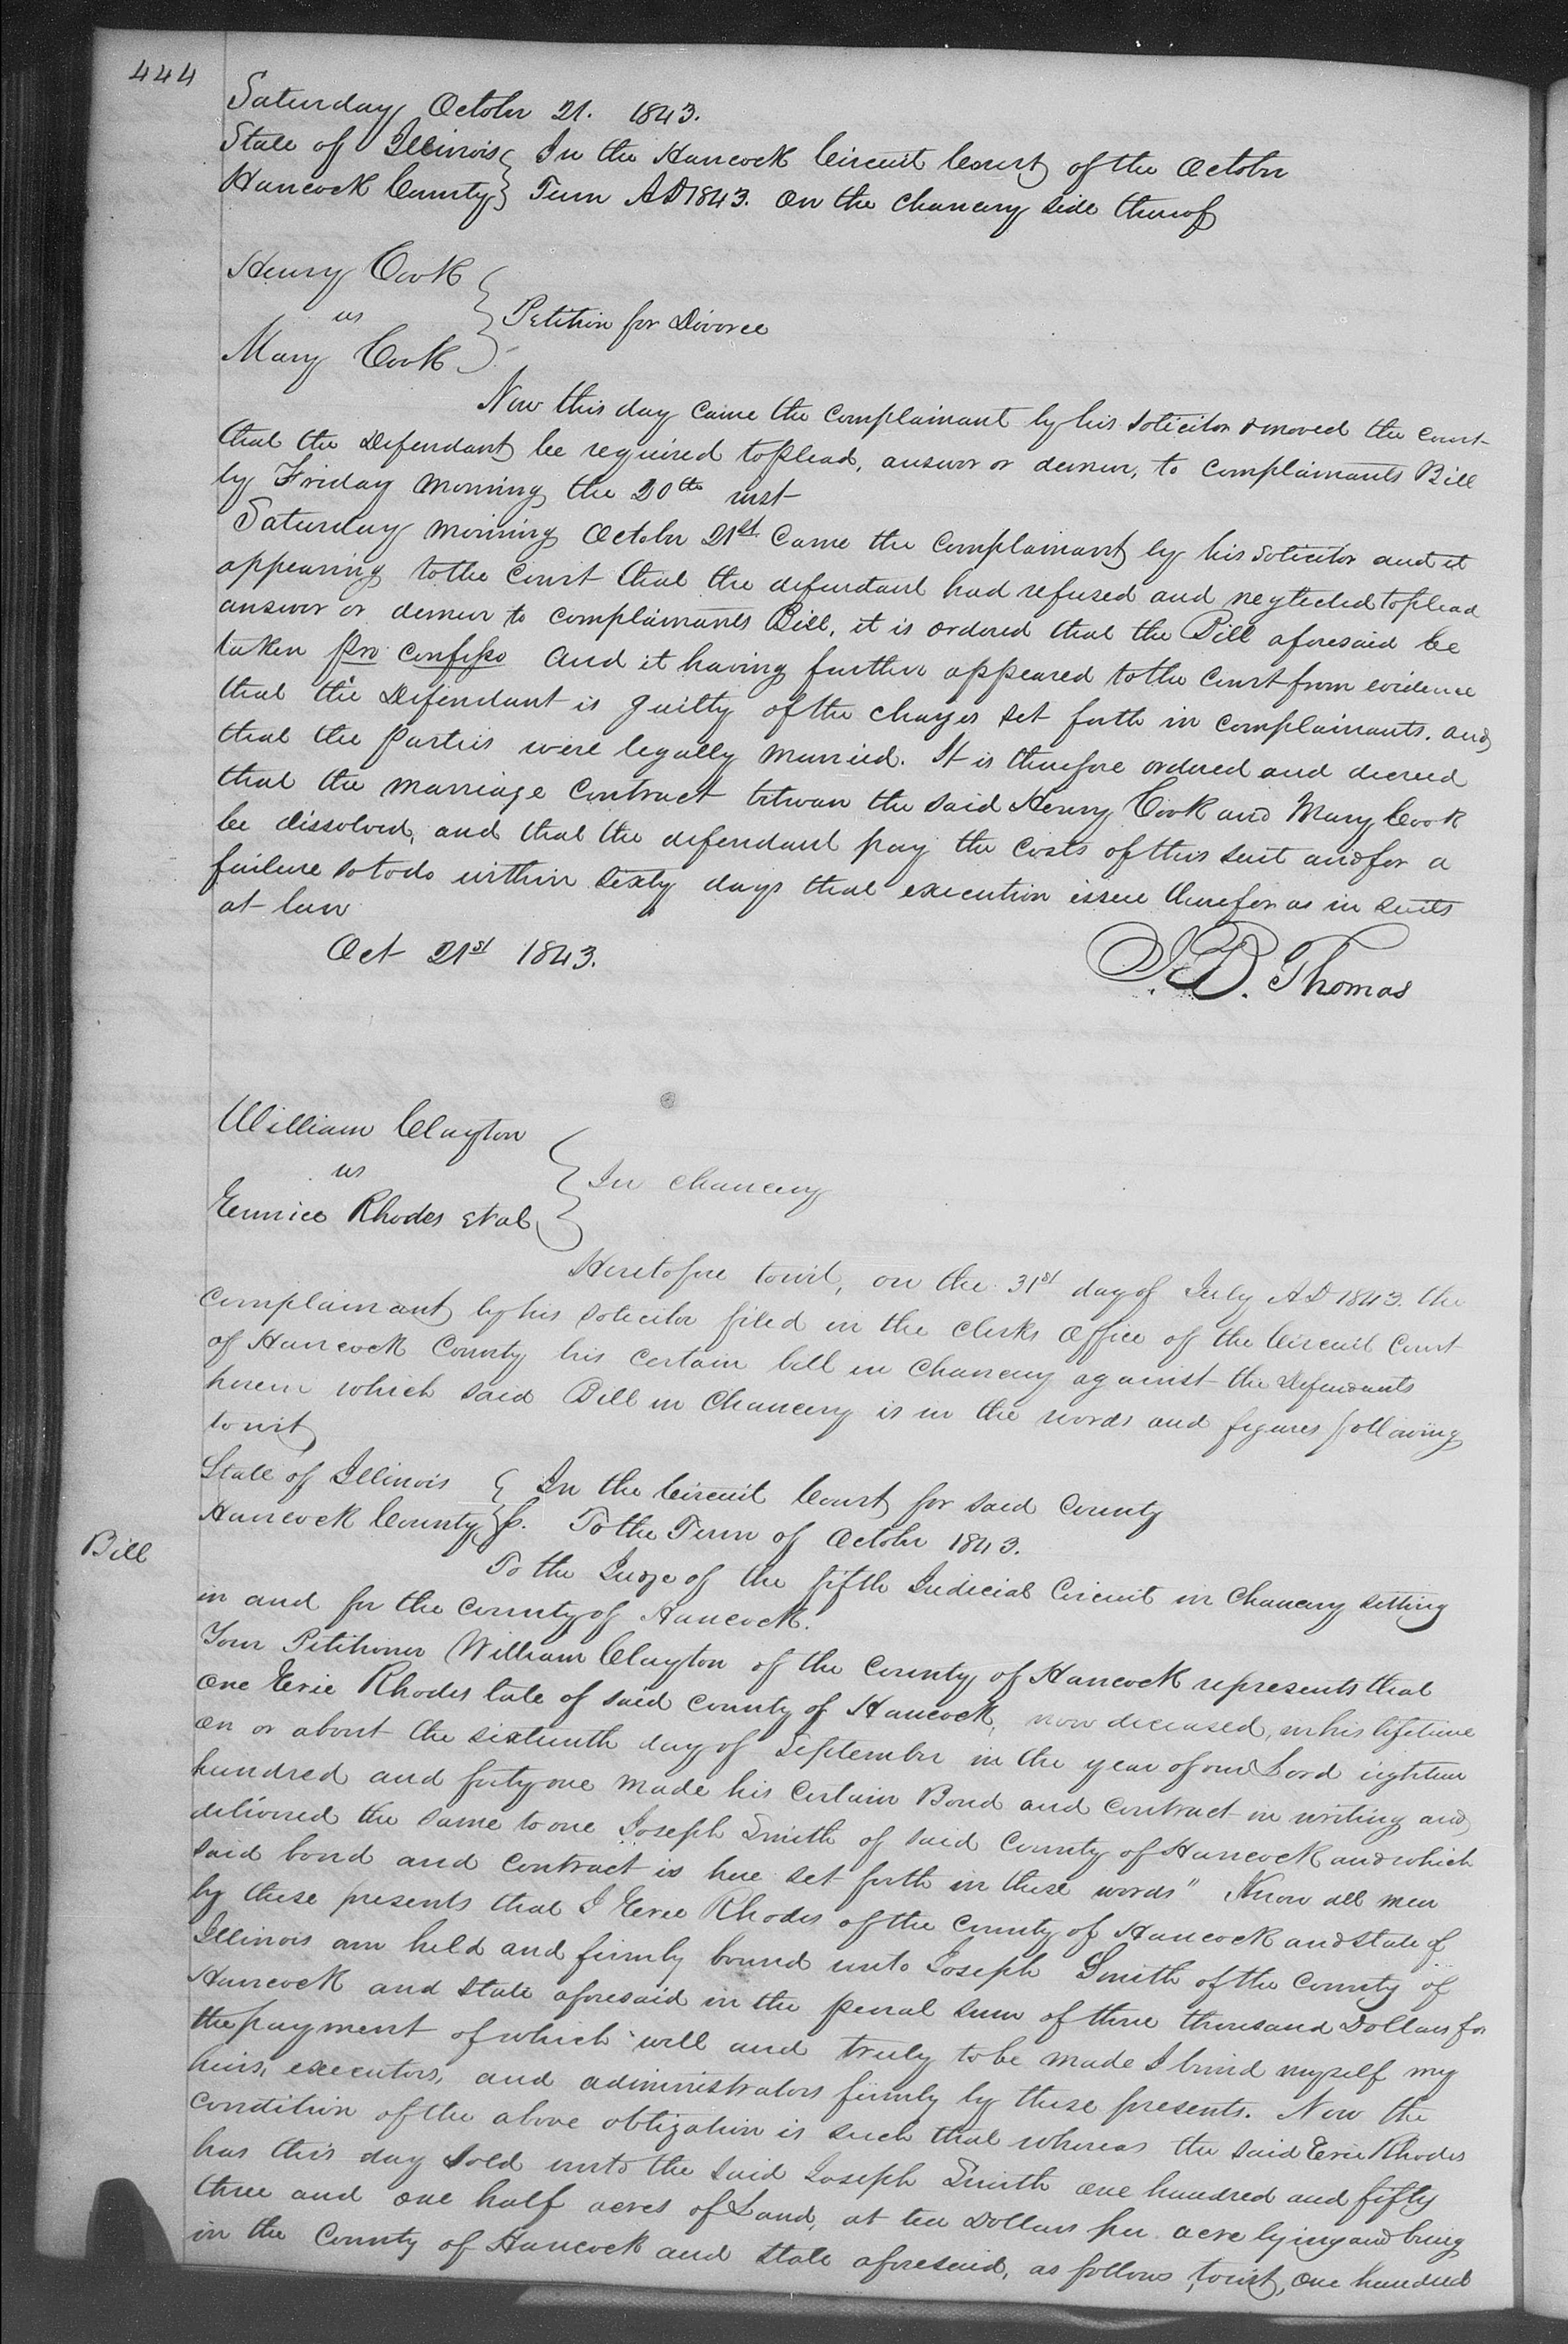 444
Saturday October 21. 1843.
State of Illinois } In the Hancock Circuit Court of the October
Hancock County } Term AD 1843. On the chancery side thereof
Henry Cook
vs } Petition for Divorce
Mary Cook
Now this day came the complainant by his solicitor & moved the court
that the Defendant be required to plead, answer or demur, to complainants Bill
by Friday morning the 20th inst
Saturday morning October 21st Came the complainant by his solicitor and it
appearing to the court that the defendant had refused and neglected to plead
answer or demur to complainants Bill, it is ordered that the Bill aforesaid be
taken pro confesso and it having further appeared to the court from evidence
that the Defendant is guilty of the charges set forth in complainants. and
that the parties were legally married. It is therefore ordered and decreed
that the marriage contract between the said Henry Cook and Mary Cook
be dissolved, and that the defendant pay the costs of this suit and for a
failure so to do within sixty days that execution issue therefor as in suits
at law
Oct 21st 1843.
J. D. Thomas
William Clayton
vs } In chancery
Eunice Rhodes et al
Heretofore towit, on the 31st day of July AD 1843. the
complainant by his solicitor filed in the clerks office of the Circuit Court
of Hancock County his certain bill in chancery against the Defendants
herein which said Bill in Chancery is in the words and figures following
towit
State of Illinois } In the Circuit Court for said county
Hancock County } ss. To the Term of October 1843.
Bill
To the Judge of the fifth Judicial Circuit in Chancery setting
in and for the county of Hancock.
Your Petitioner William Clayton of the county of Hancock represents that
one Erie Rhodes late of said county of Hancock, now deceased, in his lifetime
on or about the sixteenth day of September in the year of our Lord eighteen
hundred and forty one made his certain Bond and contract in writing and
delivered the same to one Joseph Smith of said county of Hancock and which
said bond and contract is here set forth in these words" Know all men
by these presents that I Erie Rhodes of the county of Hancock and state of
Illinois am held and firmly bound unto Joseph Smith of the county of
Hancock and state aforesaid in the penal sum of three thousand Dollars for
the payment of which well and truly to be made I bind myself my
heirs, executors, and administrators firmly by these presents. Now the
condition of the above obligation is such that whereas the said Erie Rhodes
has this day sold unto the said Joseph Smith one hundred and fifty
three and one half acres of Land, at ten Dollars per acre lying and being
in the County of Hancock and state aforesaid, as follows, towit, one hundred